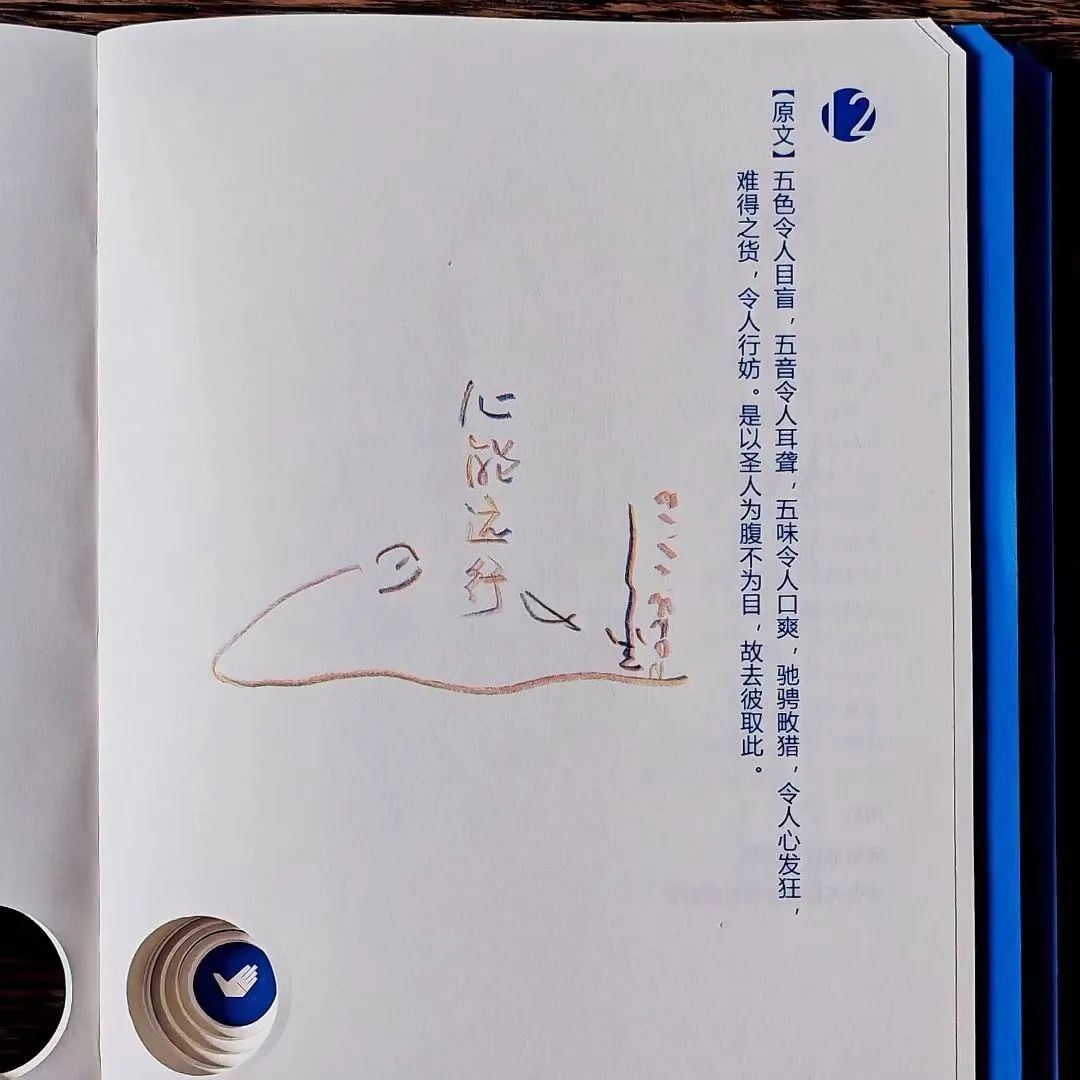 12
【原文】五色令人目盲，五音令人耳聋，五味令人口爽，驰骋畋猎，令人心发狂，
难得之货，令人行妨。是以圣人为腹不为目，故去彼取此。
心能远行